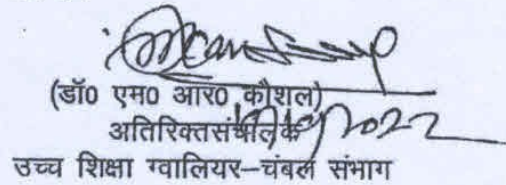 (डॉ0 एम0 आर0 कौशल)
अतिरिक्तसंचालक
उच्च शिक्षा ग्वालियर–चंबल संभाग